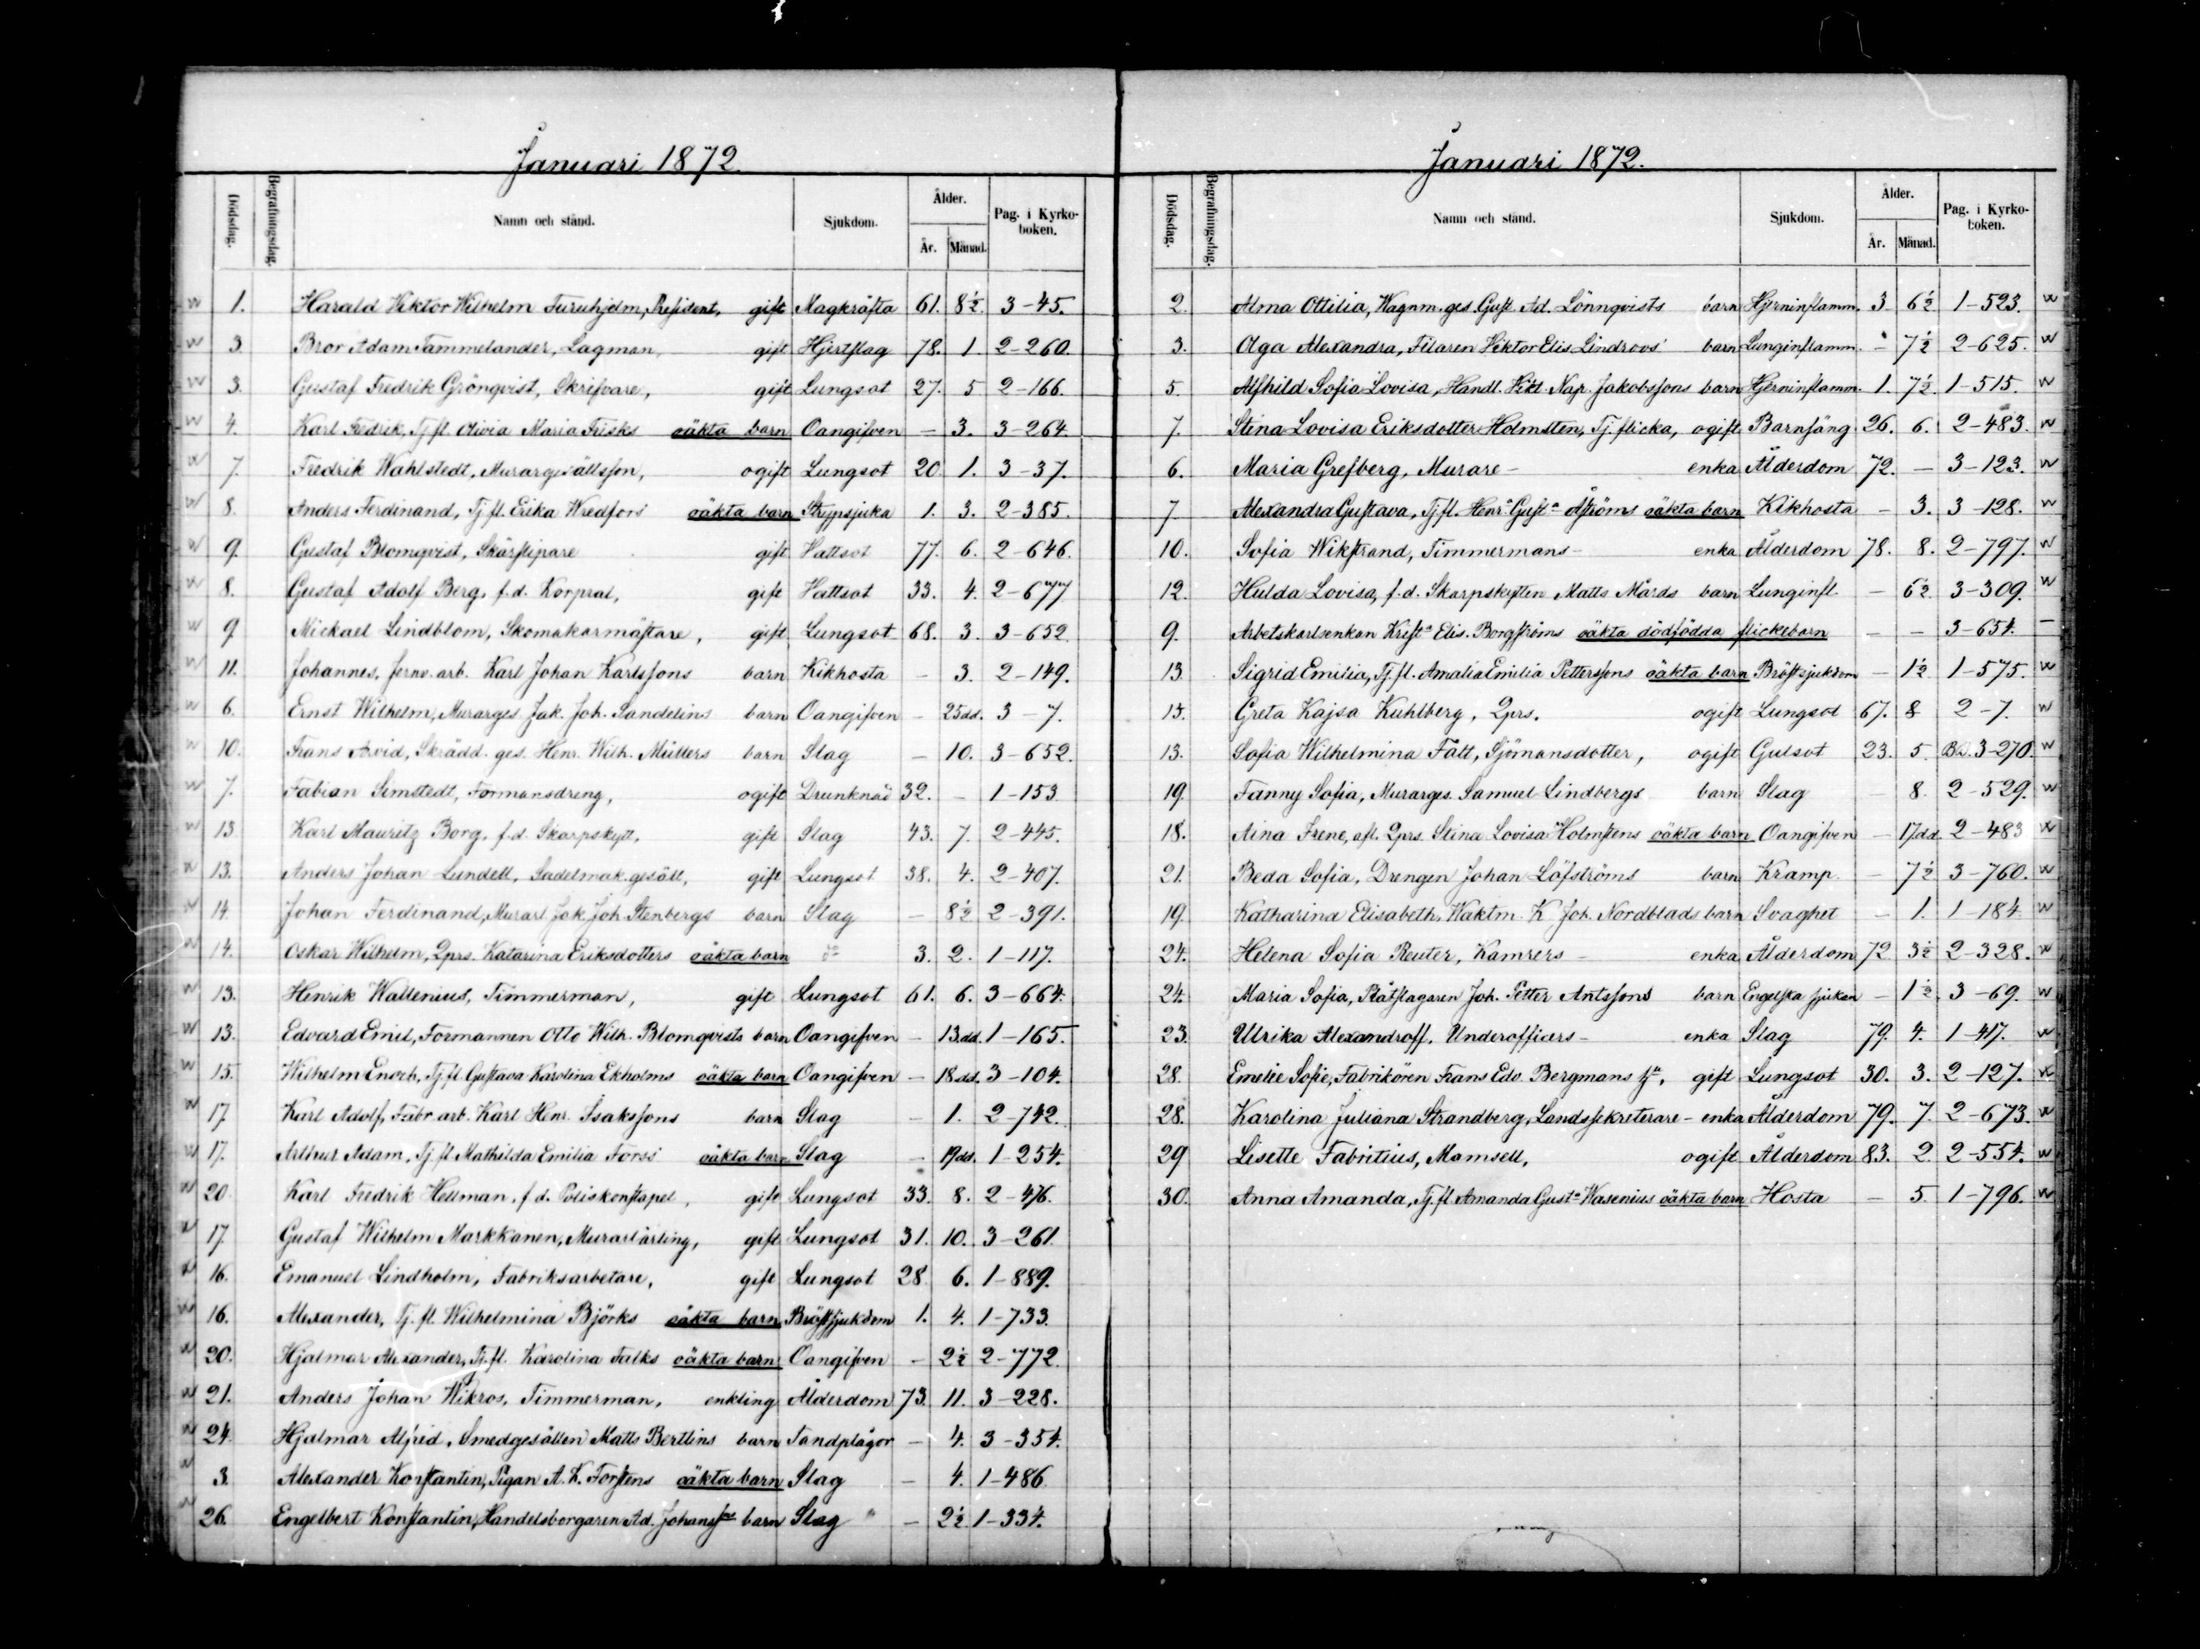 Januari 1872.
Dödsdag. Begrafningsdag. Namn och stånd. Sjukdom. Ålder. År. Månad. Pag. i Kyrkoboken.
w 1. Harald Viktor Wilhelm Furuhjelm, President, gift Magkräfta 61. 8½. 3-45.
w 3. Bror Adam Tammelander, Lagman, gift Hjertslag 78. 1. 2-260.
w 3. Gustaf Fredrik Grönqvist, Skrifvare, gift Lungsot 27. 5 2-166.
w 4. Karl Fredrik, Tj.fl. Olivia Maria Frisks oäkta barn Oangifven - 3. 3-264.
w 7. Fredrik Wahlstedt, Murargesällsson, ogift Lungsot 20. 1. 3-37.
w 8. Anders Ferdinand, Tj.fl. Erika Wredfors' oäkta barn Strypsjuka 1. 3. 2-385.
w 9. Gustaf Blomqvist, Skärslipare gift Vattsot 77. 6. 2-646.
w 8. Gustaf Adolf Berg, f.d. Korpral, gift Vattsot 33. 4. 2-677
w 9. Mickael Lindblom, Skomakarmästare, gift Lungsot 68. 3. 3-652
w 11. Johannes, Jernv. arb. Karl Johan Karlssons barn Kikhosta - 3. 2-149.
w 6. Ernst Wilhelm, Murarges. Jak. Joh. Sandelins barn Oangifven - 25dd. 3-7.
w 10. Frans Arvid, Skrädd. ges. Henr. Wilh. Müllers barn Slag - 10. 3-652.
w 7. Fabian Simstedt, Formansdreng, ogift Drunknad 32. - 1-153
w 13 Karl Mauritz Borg, f.d. Skarpskytt, gift Slag 43. 7. 2-445.
w 13. Anders Johan Lundell, Sadelmak.gesäll, gift Lungsot 38. 4. 2-407.
w 14. Johan Ferdinand, Murarl. Jak. Joh. Stenbergs barn Slag - 8½ 2-391.
w 14. Oskar Wilhelm, Qprs. Katarina Eriksdotters oäkta barn do 3. 2. 1-117.
w 13. Henrik Wallenius, Timmerman, gift Lungsot 61. 6. 3-664.
w 13. Edvard Emil, Formannen Otto Wilh. Blomqvists barn Oangifven - 13.dd. 1-165.
w 15. Wilhelm Enoch, Tj.fl. Gustava Karolina Ekholms oäkta barn Oangifven - 18 dd. 3-104.
w 17. Karl Adolf, Fabr. arb. Karl Henr. Isakssons barn Slag - 1. 2-742.
w 17. Arthur Adam, Tj.fl. Mathilda Emilia Forss' oäkta barn Slag - 19dd. 1-254.
w 20. Karl Fredrik Hellman, f.d. Poliskonstapel, gift Lungsot 33. 8. 2-476.
w 17. Gustaf Wilhelm Markkanen, Murarlärling, gift Lungsot 31. 10. 3-261.
w 16. Emanuel Lindholm, Fabriksarbetare, gift Lungsot 28. 6. 1-889.
w 16. Alexander, Tj. fl. Wilhelmina Björks oäkta barn Bröstsjukdom 1. 4. 1-733.
w 20. Hjalmar Alexander, Tj.fl. Karolina Falks oäkta barn Oangifven - 2½ 2-772.
w 21. Anders Johan Wikros, Timmerman, enkling Ålderdom 73. 11. 3-228.
w 24. Hjalmar Alfrid, Smedgesällen Matts Bertlins barn Tandplågor - 4. 3-354.
w 3. Alexander Konstantin, Pigan A. K. Forstens oäkta barn Slag - 4. 1-486
w 26. Engelbert Konstantin, Handelsborgaren Ad. Johanssons barn Slag - 2½ 1-334.
Januari 1872.
Dödsdag. Begrafningsdag. Namn och stånd. Sjukdom. Ålder. År. Månad. Pag. i Kyrkoboken.
2. Alma Ottilia, Wagnm. ges. Gust. Ad. Lönnqvists barn Hjerninflamm. 3 6½ 1-523. w
3. Olga Alexandra, Filaren Viktor Elis Lindroos' barn Lunginflamm. - 7½ 2-625. w
5. Alfhild Sofia Lovisa, Handl. Vikt. Nap. Jakobssons barn Hjerninflamm. 1. 7½. 1-515. w
7. Stina Lovisa Eriksdotter Holmsten, Tj. flicka, ogift Barnsäng 26. 6. 2-483. w
6. Maria Grefberg, Murare- enka Ålderdom 72. - 3-123. w
7 Alexandra Gustava, Tj.fl. Henra Gusta Åströms oäkta barn Kikhosta - 3. 3-128. w
10. Sofia Wikstrand, Timmermans- enka Ålderdom 78. 8. 2-797. w
12. Hulda Lovisa, f.d. Skarpskytten Matts Mårds barn Lunginfl. - 6½ 3-309. w
9. Arbetskarlsenkan Krista Elis. Borgströms oäkta dödfödda flickebarn - - 3-654. -
13. Sigrid Emilia, Tj.fl. Amalia Emilia Petterssons oäkta barn Bröstsjukdom - 1½ 1-575. w
15. Greta Kajsa Kuhlberg, Qprs. ogift Lungsot 67. 8 2-7. w
13. Sofia Wilhelmina Fält, Sjömansdotter, ogift Gulsot 23. 5. 3-270. w
19. Fanny Sofia, Murarges. Samuel Lindbergs barn Slag - 8. 2-529. w
18. Aina Irene, afl. Qprs. Stina Lovisa Holmstens oäkta barn Oangifven - 17dd. 2-483 w
21. Beda Sofia, Drengen Johan Löfströms barn Kramp. - 7½ 3-760. w
19. Katharina Elisabeth, Waktm. K. Joh. Nordblads barn Svaghet - 1. 1-184 w
24. Helena Sofia Reuter, Kamrers- enka Ålderdom 72 3½ 2-328. w
24. Maria Sofia, Plåtslagaren Joh. Petter Antssons barn Engelska sjukan - 1½. 3-69. w
23. Ulrika Alexandroff, Underofficers- enka Slag 79. 4. 1-417. w
28. Emelie Sofie, Fabrikören Frans Edv. Bergmans hu, gift Lungsot 30. 3. 2-127. w
28. Karolina Juliana Strandberg, Landssekreterare- enka Ålderdom 79. 7. 2-673. w
29 Lisette Fabritius, Mamsell, ogift Ålderdom 83. 2. 2-554. w
30. Anna Amanda, Tj.fl. Amanda Gusta Wasenius oäkta barn Hosta - 5. 1-796. w